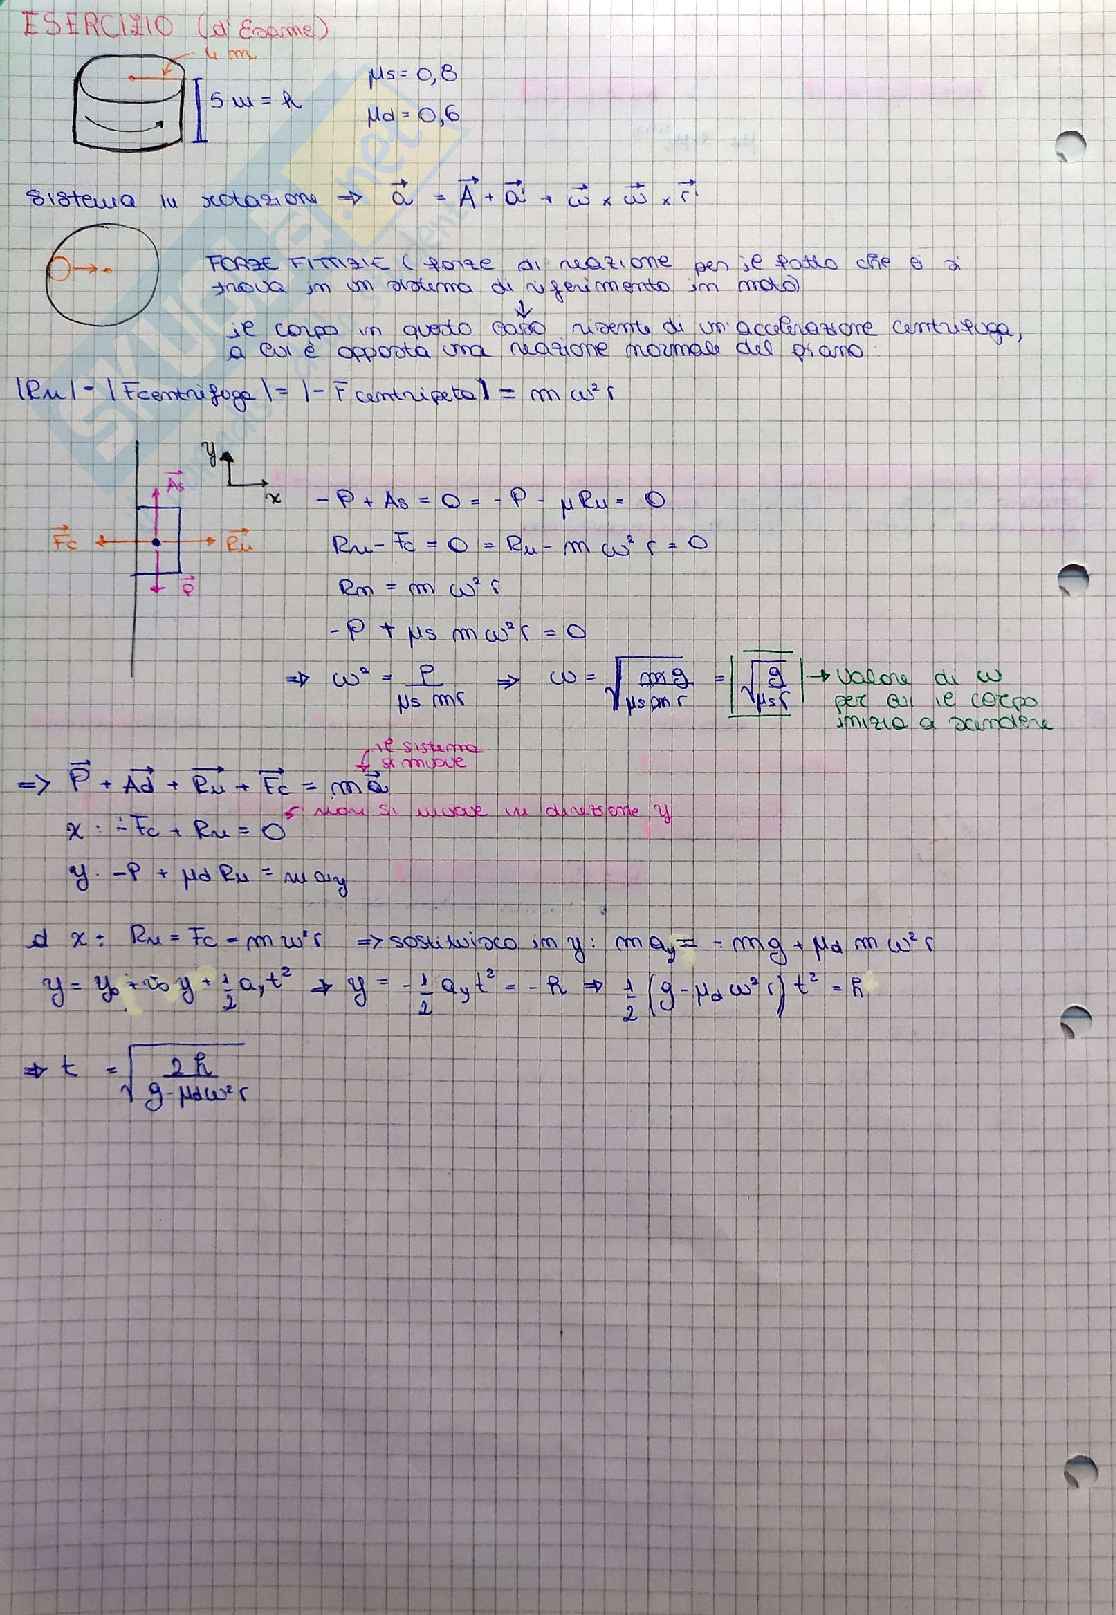 ESERCIZIO (d'Esame)
4 m
5 m = h
μs = 0,8
μd = 0,6
Sistema in rotazione ⇒ a⃗ = A⃗ + a⃗' + ω⃗ × ω⃗ × r⃗'
FORZE FITTIZIE (forze di reazione per il fatto che ci si
trova in un sistema di riferimento in moto)
↓
il corpo in questo caso risente di un'accelerazione centrifuga,
a cui è opposta una reazione normale del piano.
|Rn| = |Fcentrifuga| = |-Fcentripeta| = m ω² r
y
x
A⃗s
F⃗c
R⃗n
P⃗
-P + As = 0 = -P - μRn = 0
Rn - Fc = 0 = Rn - m ω² r = 0
Rn = m ω² r
-P + μs m ω² r = 0
⇒ ω² = P / μs m r ⇒ ω = √(mg / μs m r) = √(g / μs r) → valore di ω
per cui il corpo
inizia a scendere
il sistema
si muove
⇒ P⃗ + A⃗d + R⃗n + F⃗c = m a⃗
non si muove in direzione y
x: -Fc + Rn = 0
y: -P + μd Rn = m ay
d x: Rn = Fc = m ω² r ⇒ sostituisco in y: m ay = -mg + μd m ω² r
y = y0 + v0 y + 1/2 ay t² ⇒ y = -1/2 ay t² = -h ⇒ 1/2 (g - μd ω² r) t² = h
⇒ t = √(2h / g - μd ω² r)